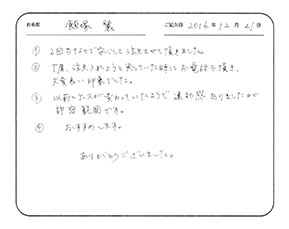 お名前 飯塚 ご記入日 2016年12月21日
① 2回目なので安心して注文させて頂きました。
② 丁度、注文入れようと思っていた時にお電話を頂き、
大変良い印象でした。
③ 以前とケースが変わっていたようで違和感ありましたが
許容範囲です。
④ おすすめします。
ありがとうございました。